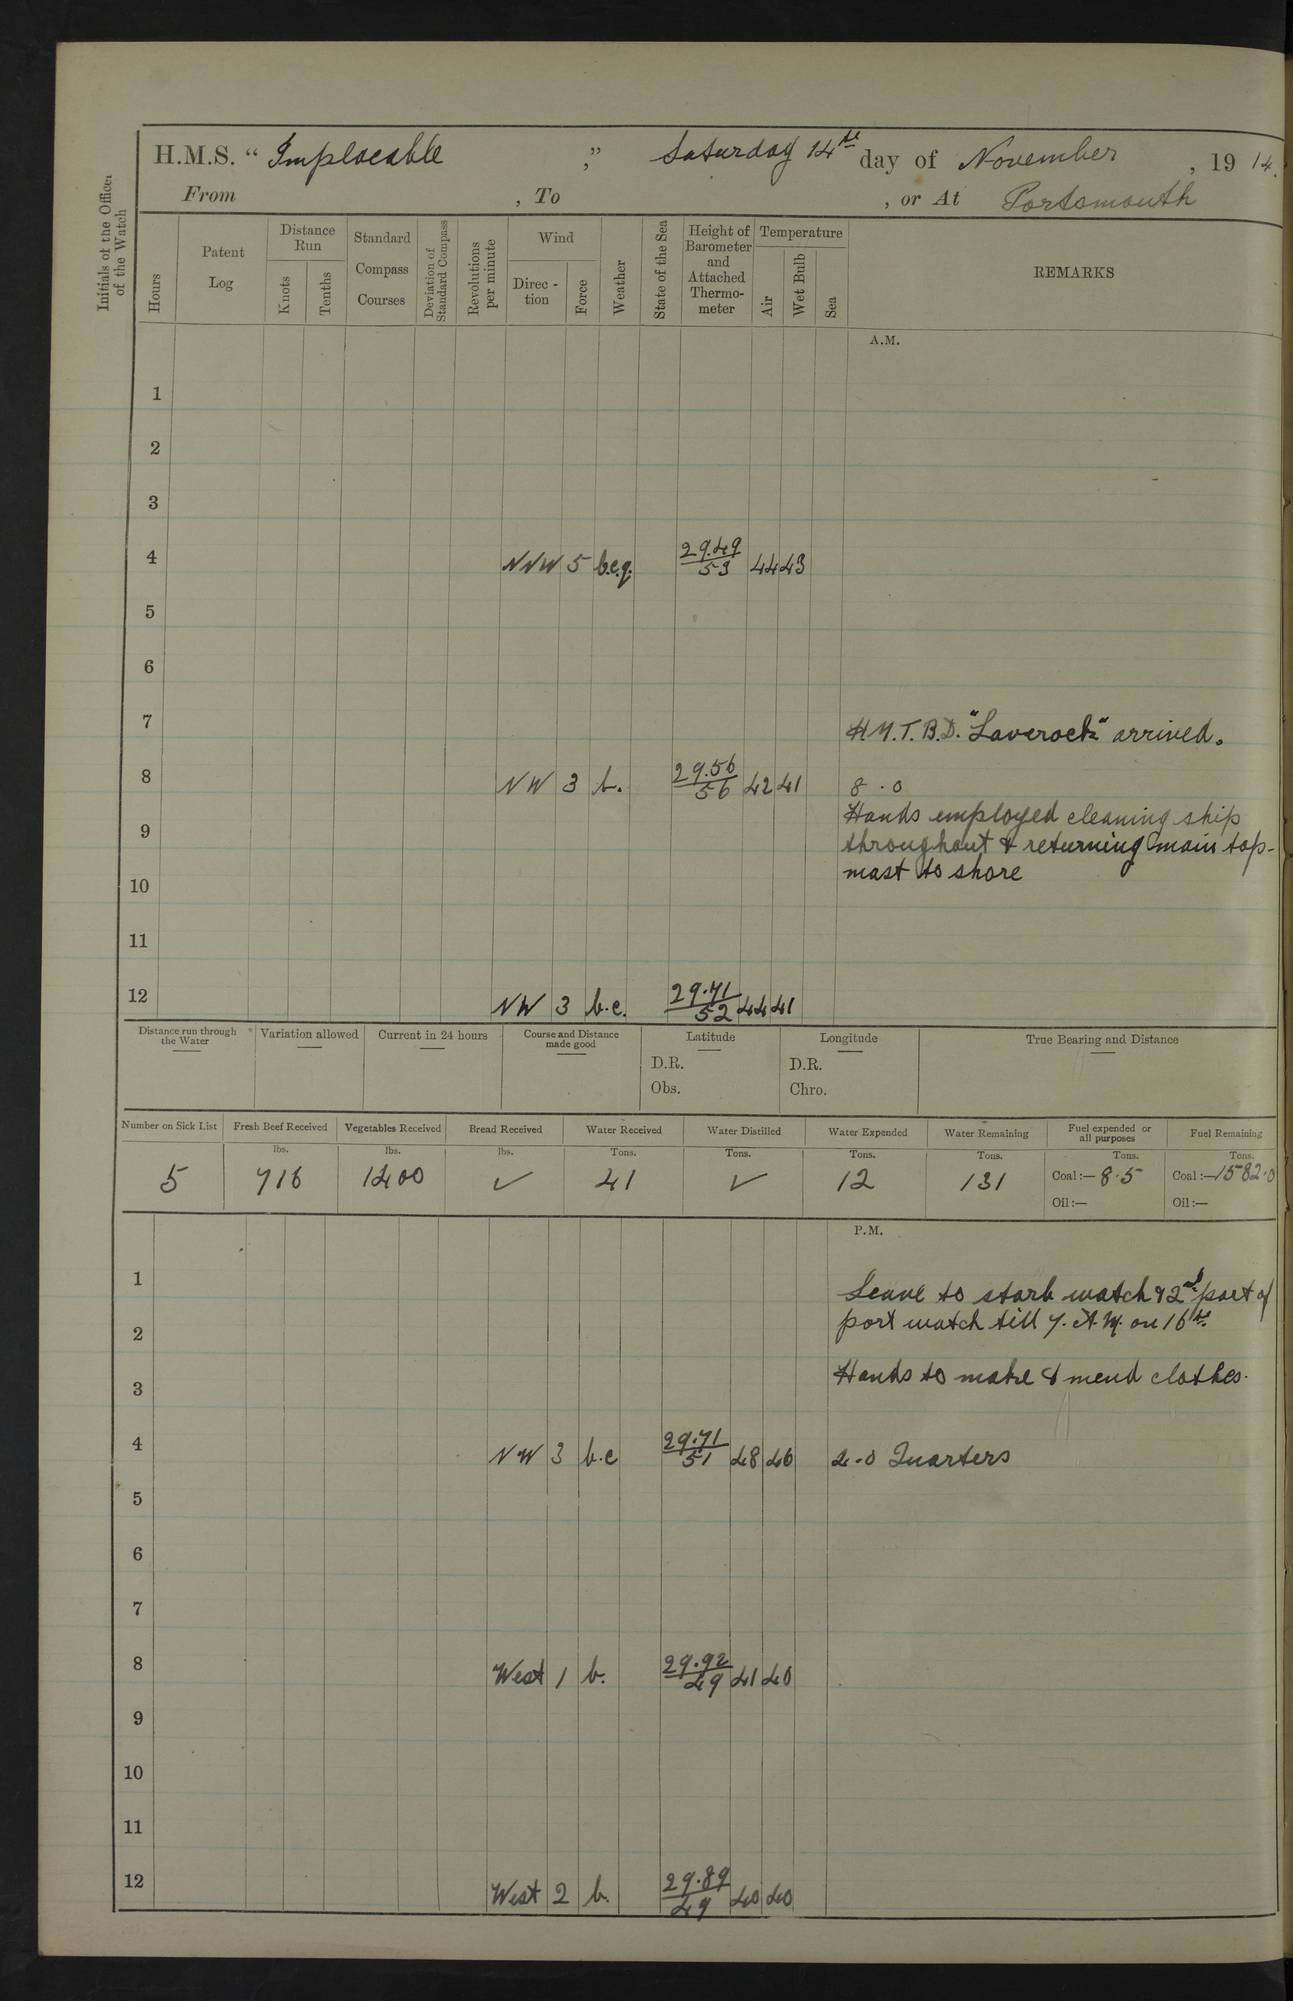 H.M.S. “ Implacable ,” Saturday 14th day of November , 19 14.
From , To , or At Portsmouth
Initials of the Officer of the Watch
Hours
Patent Log
Distance Run
Knots
Tenths
Standard Compass Courses
Deviation of Standard Compass
Revolutions per minute
Wind
Direc-tion
Force
Weather
State of the Sea
Height of Barometer and Attached Thermo-meter
Temperature
Air
Wet Bulb
Sea
REMARKS
A.M.
1
2
3
4 NNW 5 b.c.q. 29.49/53 44 43
5
6
7 H.M.T.B.D. "Laverock" arrived.
8 NW 3 b. 29.56/56 42 41 8.0
Hands employed cleaning ship
9
throughout & returning main top-
mast to shore
10
11
12 NW 3 b.c. 29.71/52 44 41
Distance run through the Water
Variation allowed
Current in 24 hours
Course and Distance made good
Latitude
D.R.
Obs.
Longitude
D.R.
Chro.
True Bearing and Distance
Number on Sick List
Fresh Beef Received
Vegetables Received
Bread Received
Water Received
Water Distilled
Water Expended
Water Remaining
Fuel expended or all purposes
Fuel Remaining
lbs. lbs. lbs. Tons. Tons. Tons. Tons. Tons. Tons.
5 716 1400 ✓ 41 ✓ 12 131 Coal:— 8.5 Coal:— 1582.0
Oil:— Oil:—
P.M.
1 Leave to starb watch & 2nd part of
port watch till 7. A.M. on 16th.
2
3 Hands to make & mend clothes.
4 NW 3 b.c 29.71/51 48 46 4.0 Quarters
5
6
7
8 West 1 b. 29.92/49 41 40
9
10
11
12 West 2 b. 29.89/49 40 40